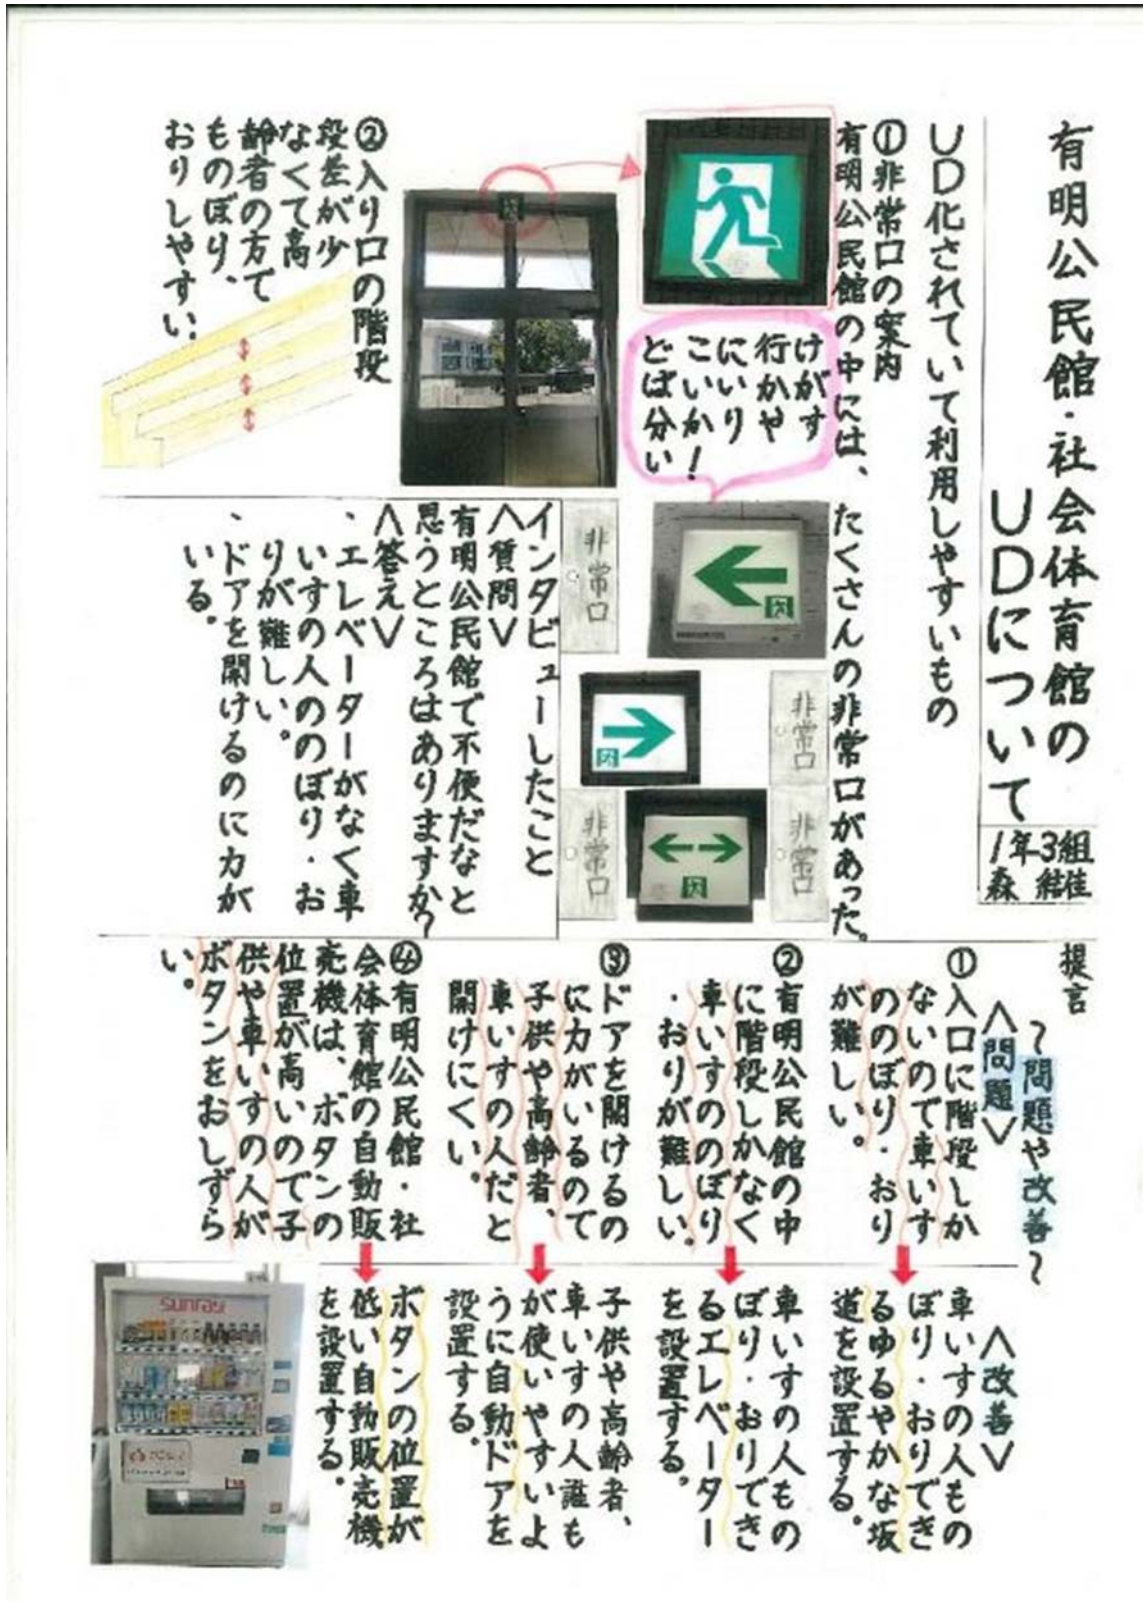 有明公民館・社会体育館の
UDについて
1年3組
森 結佳
UD化されていて利用しやすいもの
①非常口の案内
有明公民館の中には、たくさんの非常口があった。
けがす
行かや
にいり
こいか
どば分い
い!
非常口
非常口
非常口
非常口
②入り口の階段
段差が少
なくて高
齢者の方で
ものぼり、
おりしやすい。
インタビューしたこと
<質問>
有明公民館で不便だなと
思うところはありますか?
<答え>
・エレベーターがなく車
いすの人ののぼり・お
りが難しい。
・ドアを開けるのに力が
いる。
提言
~問題や改善~
<問題>
①入口に階段しか
ないので車いす
ののぼり・おり
が難しい。
②有明公民館の中
に階段しかなく
車いすののぼり
・おりが難しい。
③ドアを開けるの
に力がいるので
子供や高齢者、
車いすの人だと
開けにくい。
④有明公民館・社
会体育館の自動販
売機は、ボタンの
位置が高いので子
供や車いすの人が
ボタンをおしずら
い。
<改善>
車いすの人もの
ぼり・おりでき
るゆるやかな坂
道を設置する。
車いすの人もの
ぼり・おりでき
るエレベーター
を設置する。
子供や高齢者、
車いすの人誰も
が使いやすいよ
うに自動ドアを
設置する。
ボタンの位置が
低い自動販売機
を設置する。
sunray